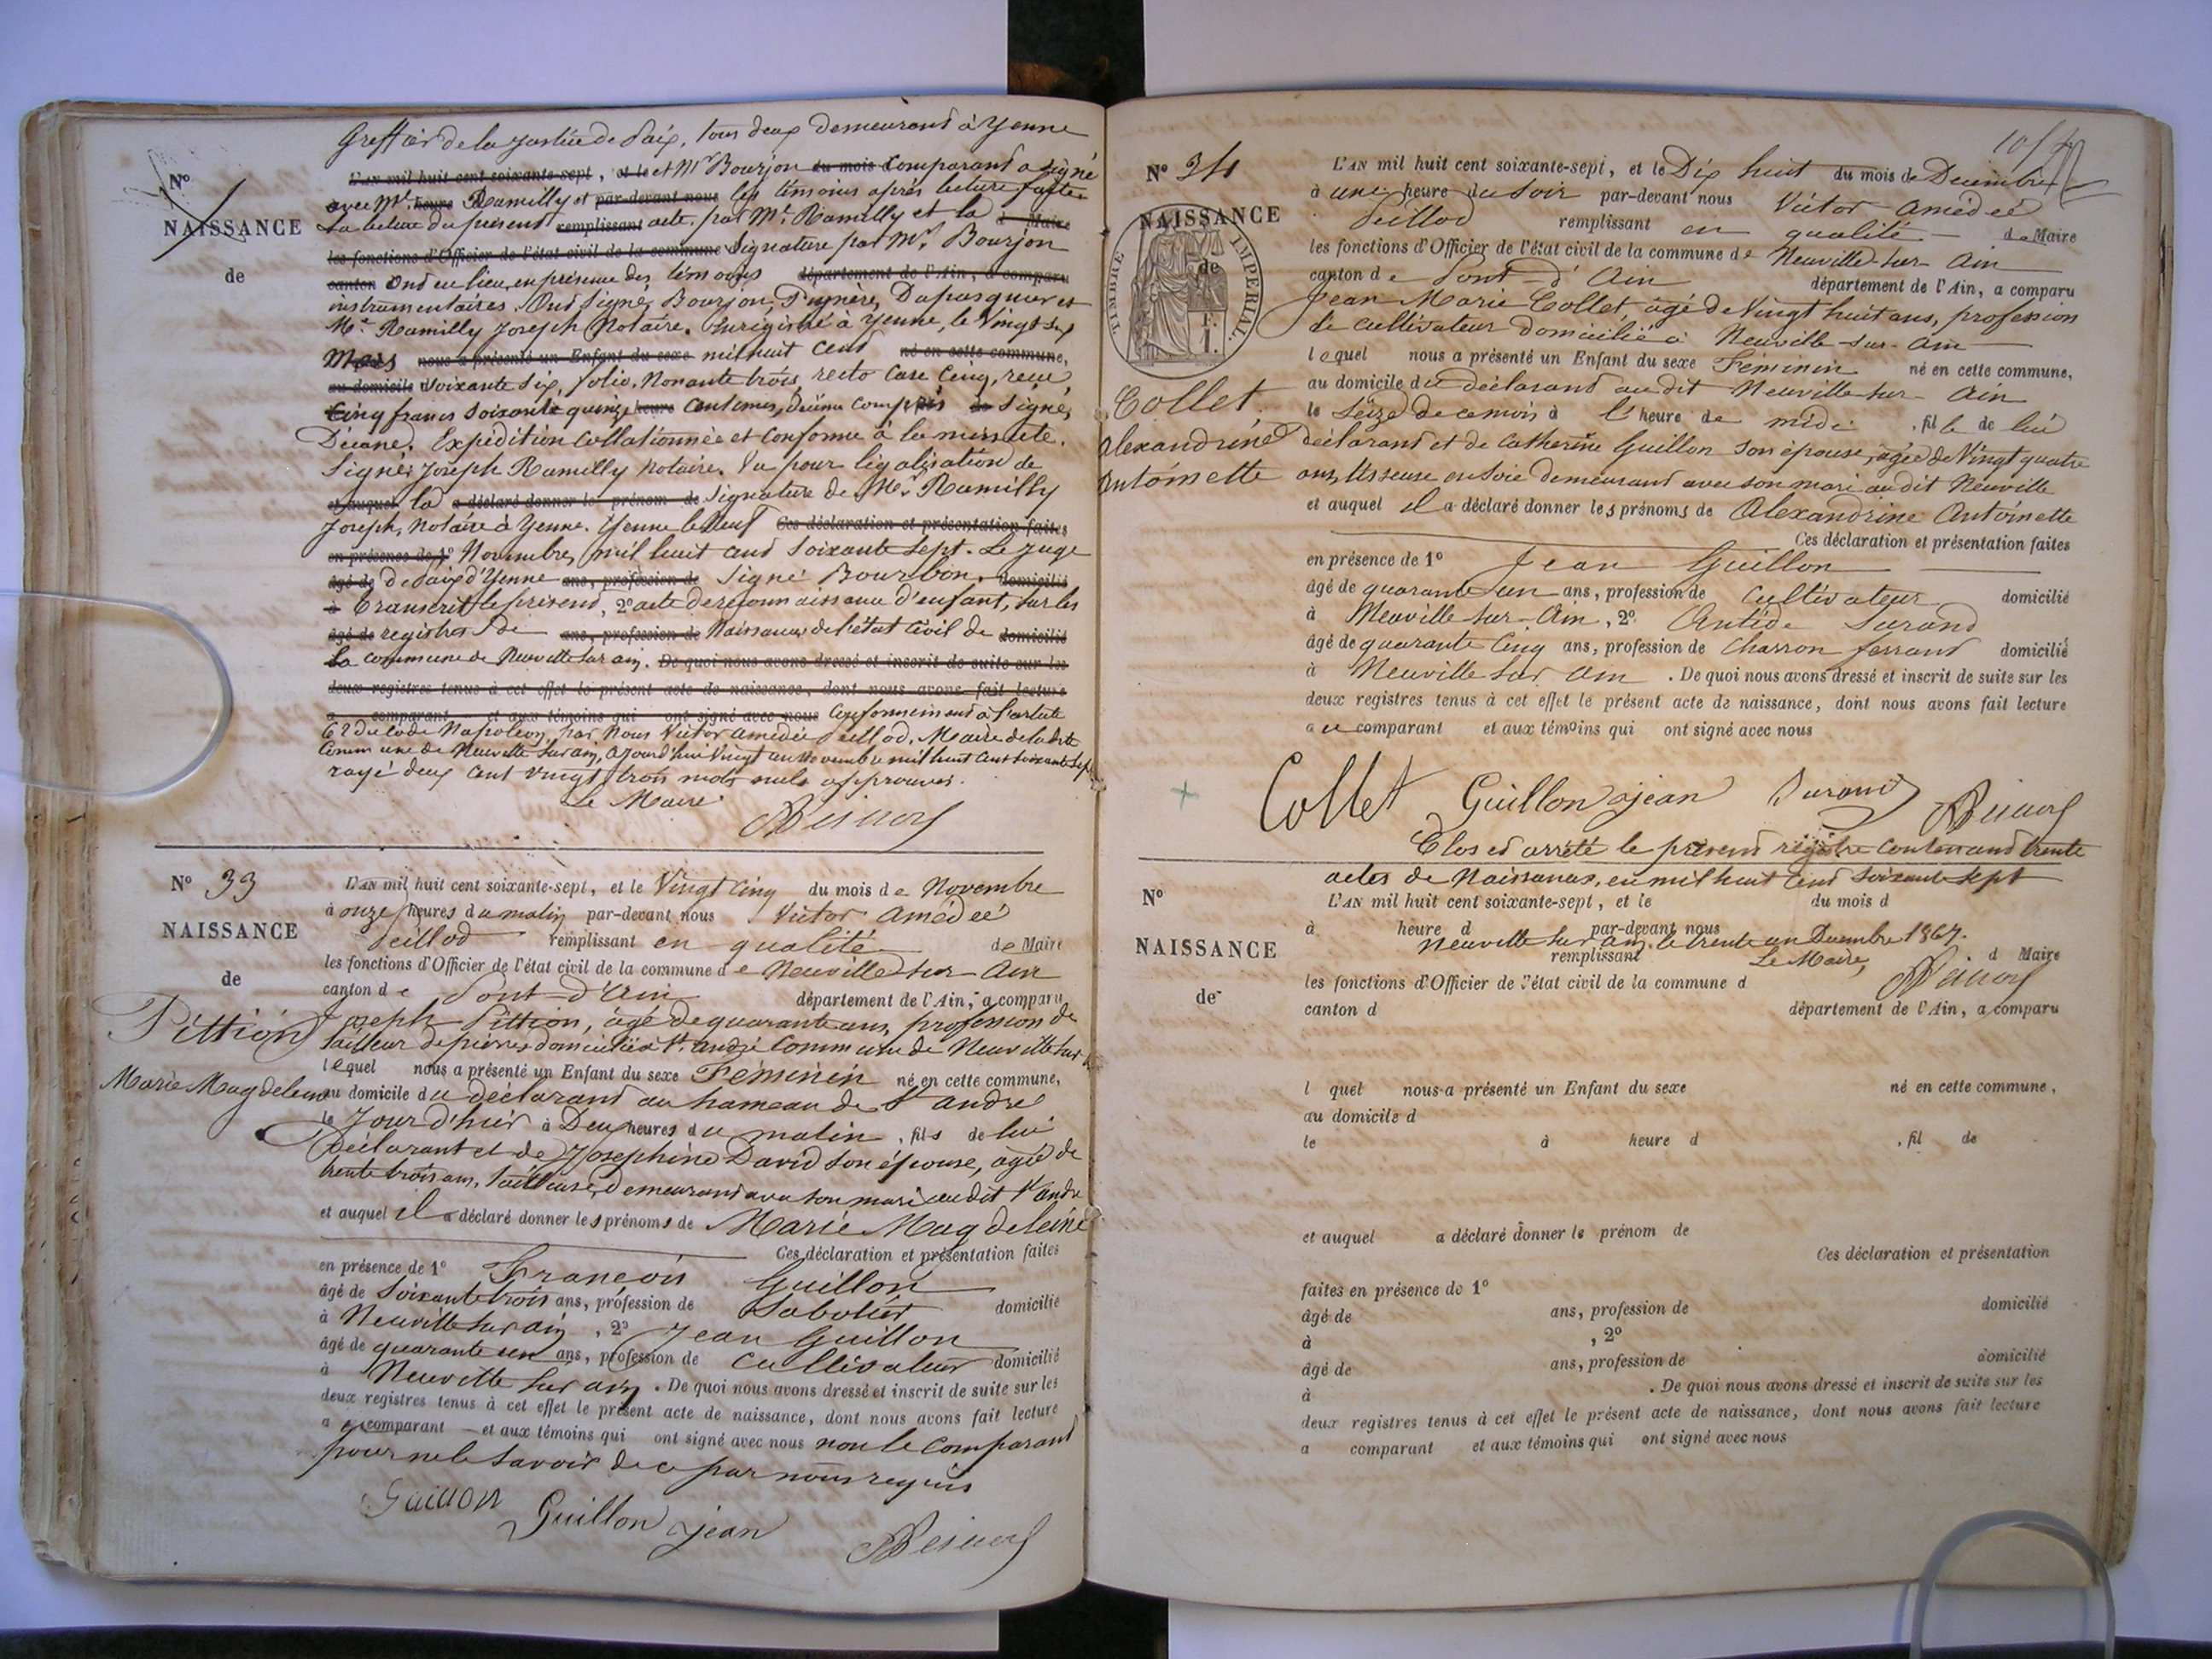 Greffier de la Justice de Paix, tous deux demeurant à Yenne
L'AN mil huit cent soixante-sept, et le et Mr Bourjon du mois Comparant a signé
avec Me heure Ramilly et par-devant nous les témoins après lecture faite.
La lecture du présent remplissant acte, par Me Ramilly et la d Maire
les fonctions d'Officier de l'état civil de la commune Signature par Mr Bourjon
canton ont eu lieu, en présence des témoins département de l'Ain, a comparu
instrumentaires. Ont signé, Bourjon, Dupasquier et
Me Ramilly Joseph Notaire. Enrégistré à Yenne, le Vingt sept
Mars nous a présenté un Enfant du sexe mil huit cent né en cette commune,
au domicile soixante six, folio, Nonante trois, recto Case Cinq, reçu
Cinq francs soixante quinze heure Centimes, décime compris Signé,
Décane. Expédition Collationnée et conforme à la minute.
Signé: Joseph Ramilly Notaire. Vu pour légalisation de
et auquel la a déclaré donner le prénom de signature de Me Ramilly
Joseph, Notaire à Yenne. Yenne le Neuf Ces déclaration et présentation faites
en présence de 1° Novembre, mil huit cent soixante sept. Le Juge
âgé de De Paix d'Yenne ans, profession de Signé Bourbon. domicilié
à Transcrit le présent, 2° acte de reconnaissance d'enfant, sur les
âgé de registres de ans, profession de Naissances de l'état civil de domicilié
La commune de Neuville sur ain. De quoi nous avons dressé et inscrit de suite sur les
deux registres tenus à cet effet le présent acte de naissance, dont nous avons fait lecture
a comparant et aux témoins qui ont signé avec nous Conformément à l'article
62 du Code Napoléon, par Nous Victor amédée Peillod, Maire de ladite
Commune de Neuville sur ain, aujourd'hui Vingt un Novembre mil huit cent soixante sept
rayé deux cent vingt trois mots nuls approuvés.
Le Maire
N°
NAISSANCE
de
N° 33
NAISSANCE
de
Pittion
Marie Magdeleine
L'AN mil huit cent soixante-sept, et le Vingt Cinq du mois de Novembre
à onze heures du matin par-devant nous Victor Amédée
Peillod remplissant en qualité de Maire
les fonctions d'Officier de l'état civil de la commune de Neuville sur Ain
canton de Pont-d'Ain département de l'Ain, a comparu
Joseph Pittion, âgé de quarante ans, profession de
tailleur de pierres domicilié à St. André Commune de Neuville sur
lequel nous a présenté un Enfant du sexe Féminin né en cette commune,
au domicile du déclarant au hameau de St André
le Jour d'hier à Deux heures du matin, fils de lui
déclarant et de Joséphine David son épouse, agée de
trente trois ans, tailleuse, demeurant avec son mari audit St André
et auquel il a déclaré donner les prénoms de Marie Magdeleine
Ces déclaration et présentation faites
en présence de 1° François Guillon
âgé de Soixante trois ans, profession de Sabotier domicilié
à Neuville sur ain, 2° Jean Guillon
âgé de quarante un ans, profession de Cultivateur domicilié
à Neuville sur ain. De quoi nous avons dressé et inscrit de suite sur les
deux registres tenus à cet effet le présent acte de naissance, dont nous avons fait lecture
au comparant et aux témoins qui ont signé avec nous non le comparant
pour ne le savoir de ce par nous requis
Guillon Guillon jean
N° 34
NAISSANCE
de
TIMBRE IMPERIAL
1 F.
Collet
Alexandrine
Antoinette
L'AN mil huit cent soixante-sept, et le Dix huit du mois de Décembre
à une heure du Soir par-devant nous Victor Amédée
Peillod remplissant en qualité de Maire
les fonctions d'Officier de l'état civil de la commune de Neuville-sur-Ain
canton de Pont-d'Ain département de l'Ain, a comparu
Jean Marie Collet, âgé de Vingt huit ans, profession
de cultivateur domicilié à Neuville-sur-Ain
lequel nous a présenté un Enfant du sexe Féminin né en cette commune,
au domicile du déclarant audit Neuville-sur-Ain
le Seize de ce mois à l'heure de midi, fille de lui
déclarant et de Catherine Guillon son épouse, agée de Vingt quatre
ans, tisseuse en soie demeurant avec son mari audit Neuville
et auquel il a déclaré donner les prénoms de Alexandrine Antoinette
Ces déclaration et présentation faites
en présence de 1° Jean Guillon
âgé de quarante un ans, profession de Cultivateur domicilié
à Neuville-sur-Ain, 2° Antide Durand
âgé de quarante Cinq ans, profession de Charron ferrant domicilié
à Neuville sur Ain. De quoi nous avons dressé et inscrit de suite sur les
deux registres tenus à cet effet le présent acte de naissance, dont nous avons fait lecture
au comparant et aux témoins qui ont signé avec nous
Collet Guillon jean Durand
Clos et arrêté le présent régistre contenant trente
actes de Naissances, en mil huit cent soixante sept
Neuville sur ain, le trente un Décembre 1867.
Le Maire,
N°
NAISSANCE
de
L'AN mil huit cent soixante-sept, et le du mois d
à heure d par-devant nous
remplissant d Maire
les fonctions d'Officier de l'état civil de la commune d
canton d département de l'Ain, a comparu
l quel nous a présenté un Enfant du sexe né en cette commune,
au domicile d
le à heure d , fil de
et auquel a déclaré donner le prénom de
Ces déclaration et présentation
faites en présence de 1°
âgé de ans, profession de domicilié
à , 2°
âgé de ans, profession de domicilié
à . De quoi nous avons dressé et inscrit de suite sur les
deux registres tenus à cet effet le présent acte de naissance, dont nous avons fait lecture
a comparant et aux témoins qui ont signé avec nous